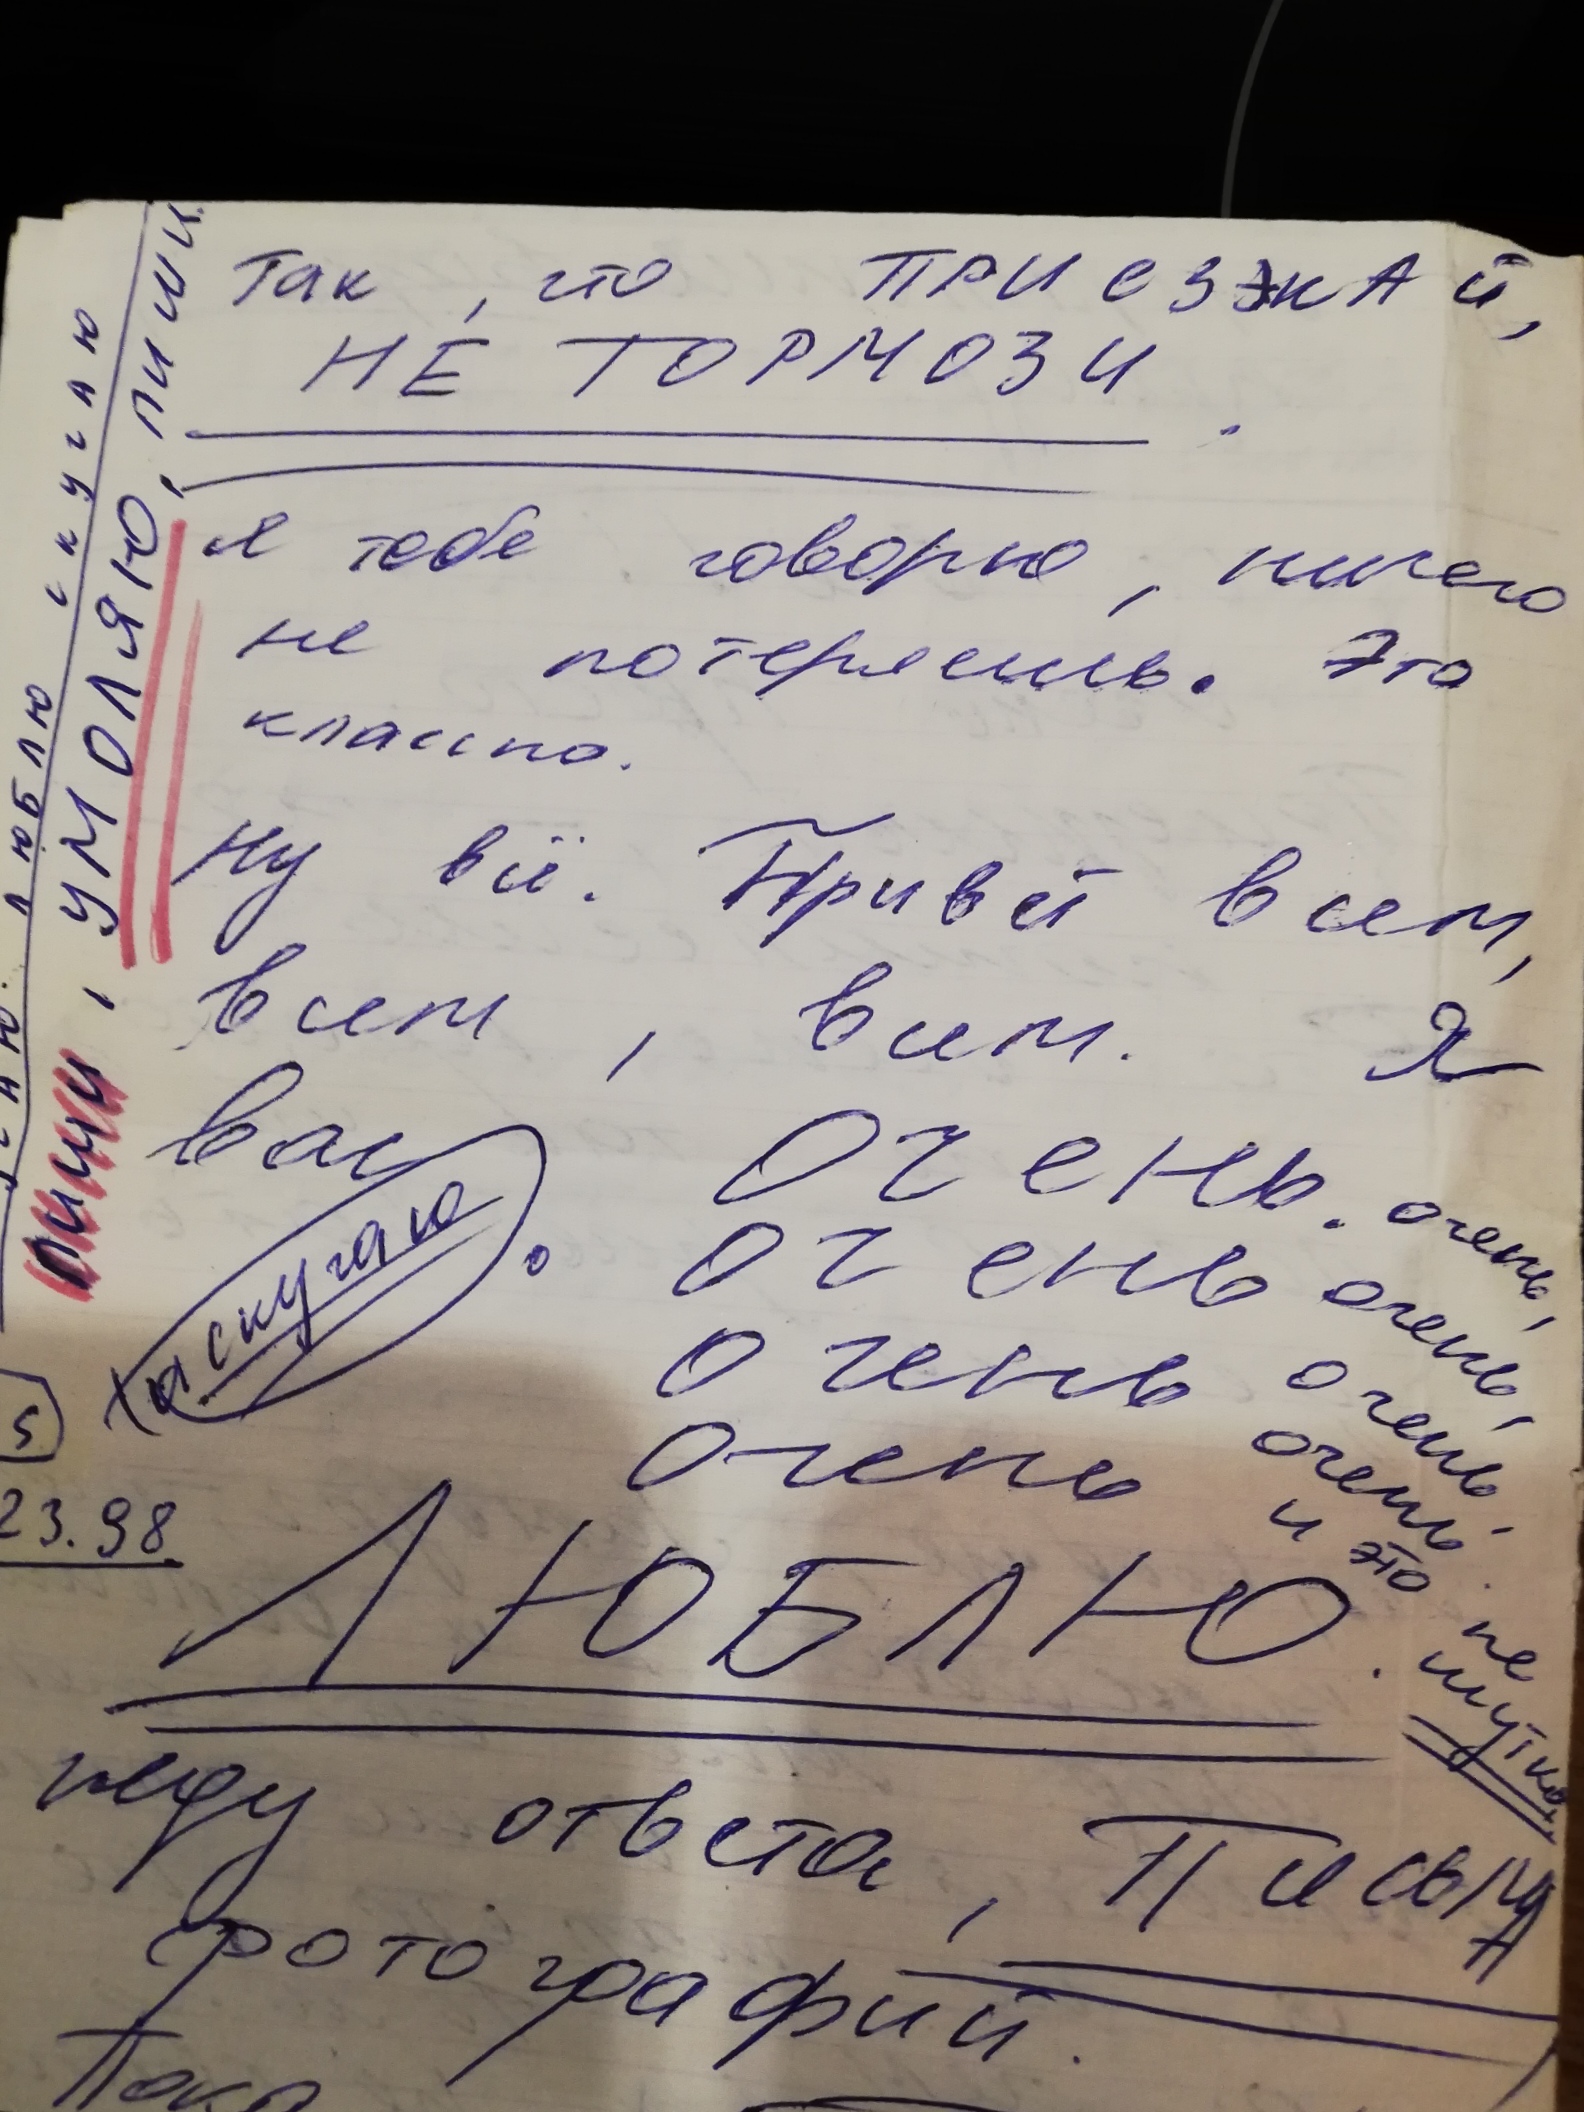 Так, что ПРИЕЗЖАЙ,
НЕ ТОРМОЗИ.
я тебе говорю, ничего
не потеряешь. Это
классно.
Ну всё. Привет всем,
всем, всем. Я
вас ОЧЕНЬ. очень,
очень очень,
очень очень.
очень очень.
и это не шутка
скучаю
ЛЮБЛЮ.
жду ответа, ПИСЬМА
фотографий.
Пока
ПИШИ, УМОЛЯЮ, ПИШИ.
ЛЮБЛЮ СКУЧАЮ
5
23.98